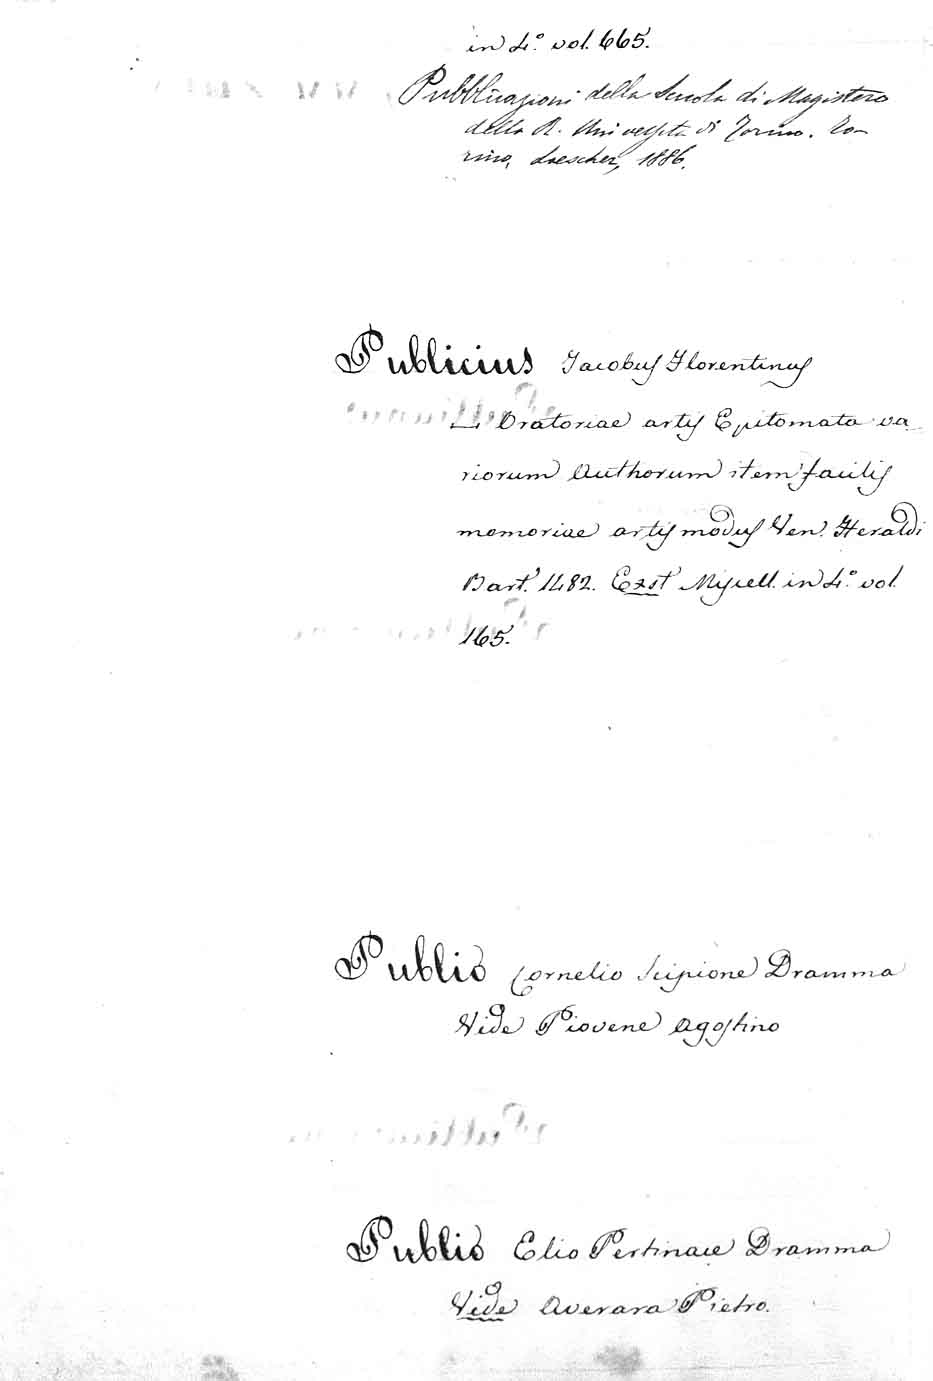 in 4.° vol. 665.
Pubblicazioni della Scuola di Magistero
della R. Università di Torino. To-
rino, Loescher, 1886.
Publicius Jacobus Florentinus
Oratoriae artis Epitomata va
riorum Authorum item facilis
memoriae artis modus Ven. Heraldi
Bart. 1482. Exst Miscell. in 4.° vol.
165.
Publio Cornelio Scipione Dramma
Vide Piovene Agostino
Publio Elio Pertinace Dramma
Vide Averara Pietro.